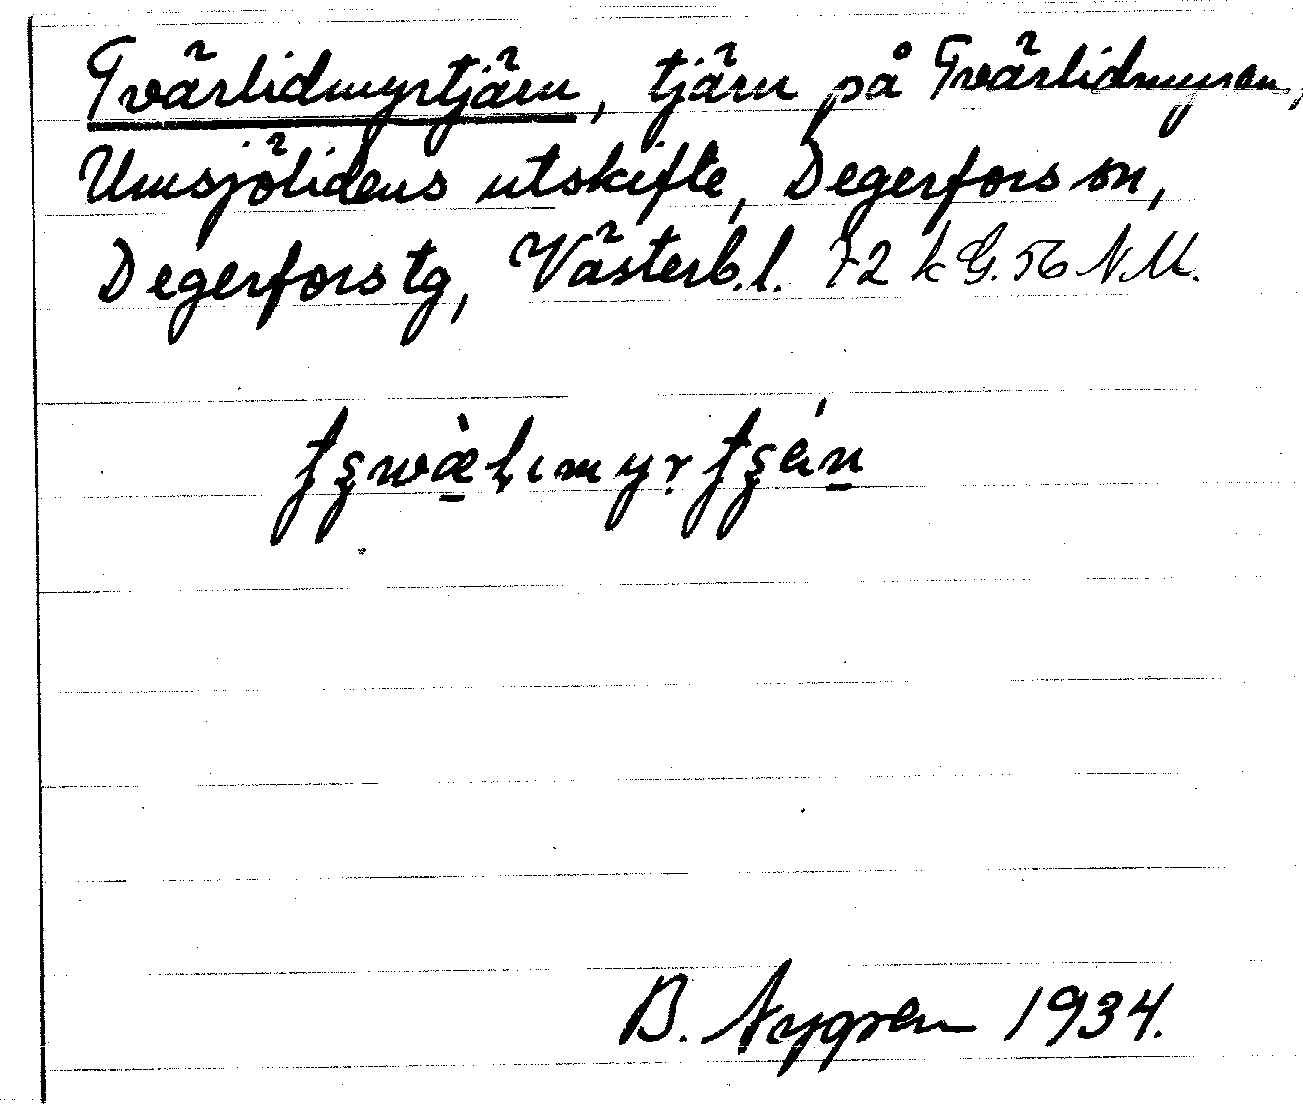 Tvärlidmyrtjärn, tjärn på Tvärlidmyren,
Umsjölidens utskifte, Degerfors sn,
Degerfors tg, Västerb. l. 72 k G. 56 N M.
B. Nygren 1934.